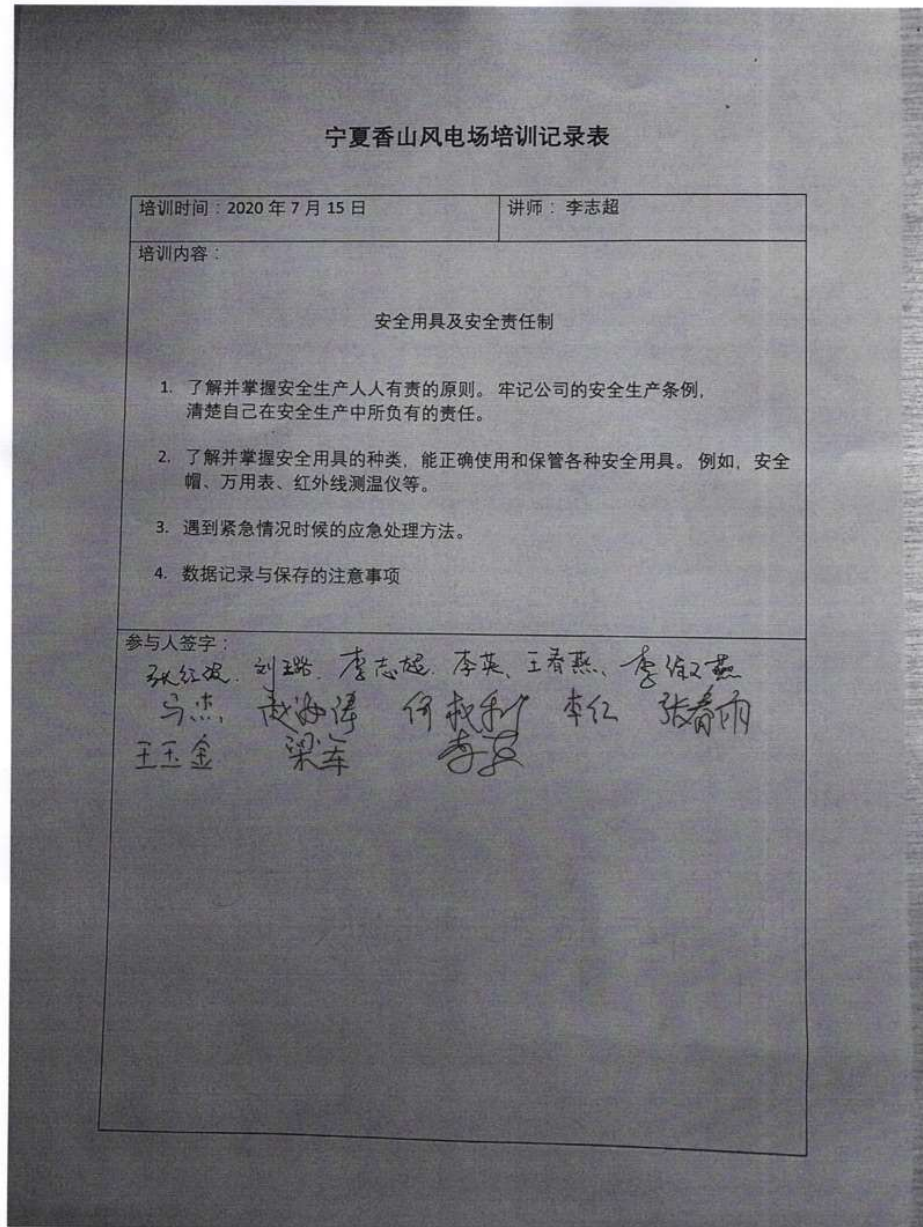 宁夏香山风电场培训记录表
培训时间：2020 年 7 月 15 日
讲师： 李志超
培训内容：
安全用具及安全责任制
1. 了解并掌握安全生产人人有责的原则。 牢记公司的安全生产条例，
清楚自己在安全生产中所负有的责任。
2. 了解并掌握安全用具的种类，能正确使用和保管各种安全用具。 例如，安全
帽、万用表、红外线测温仪等。
3. 遇到紧急情况时候的应急处理方法。
4. 数据记录与保存的注意事项
参与人签字：
刘璐、李志超、李英、王春燕、
马杰、赵海涛 李红 张春雨
王玉金 梁军